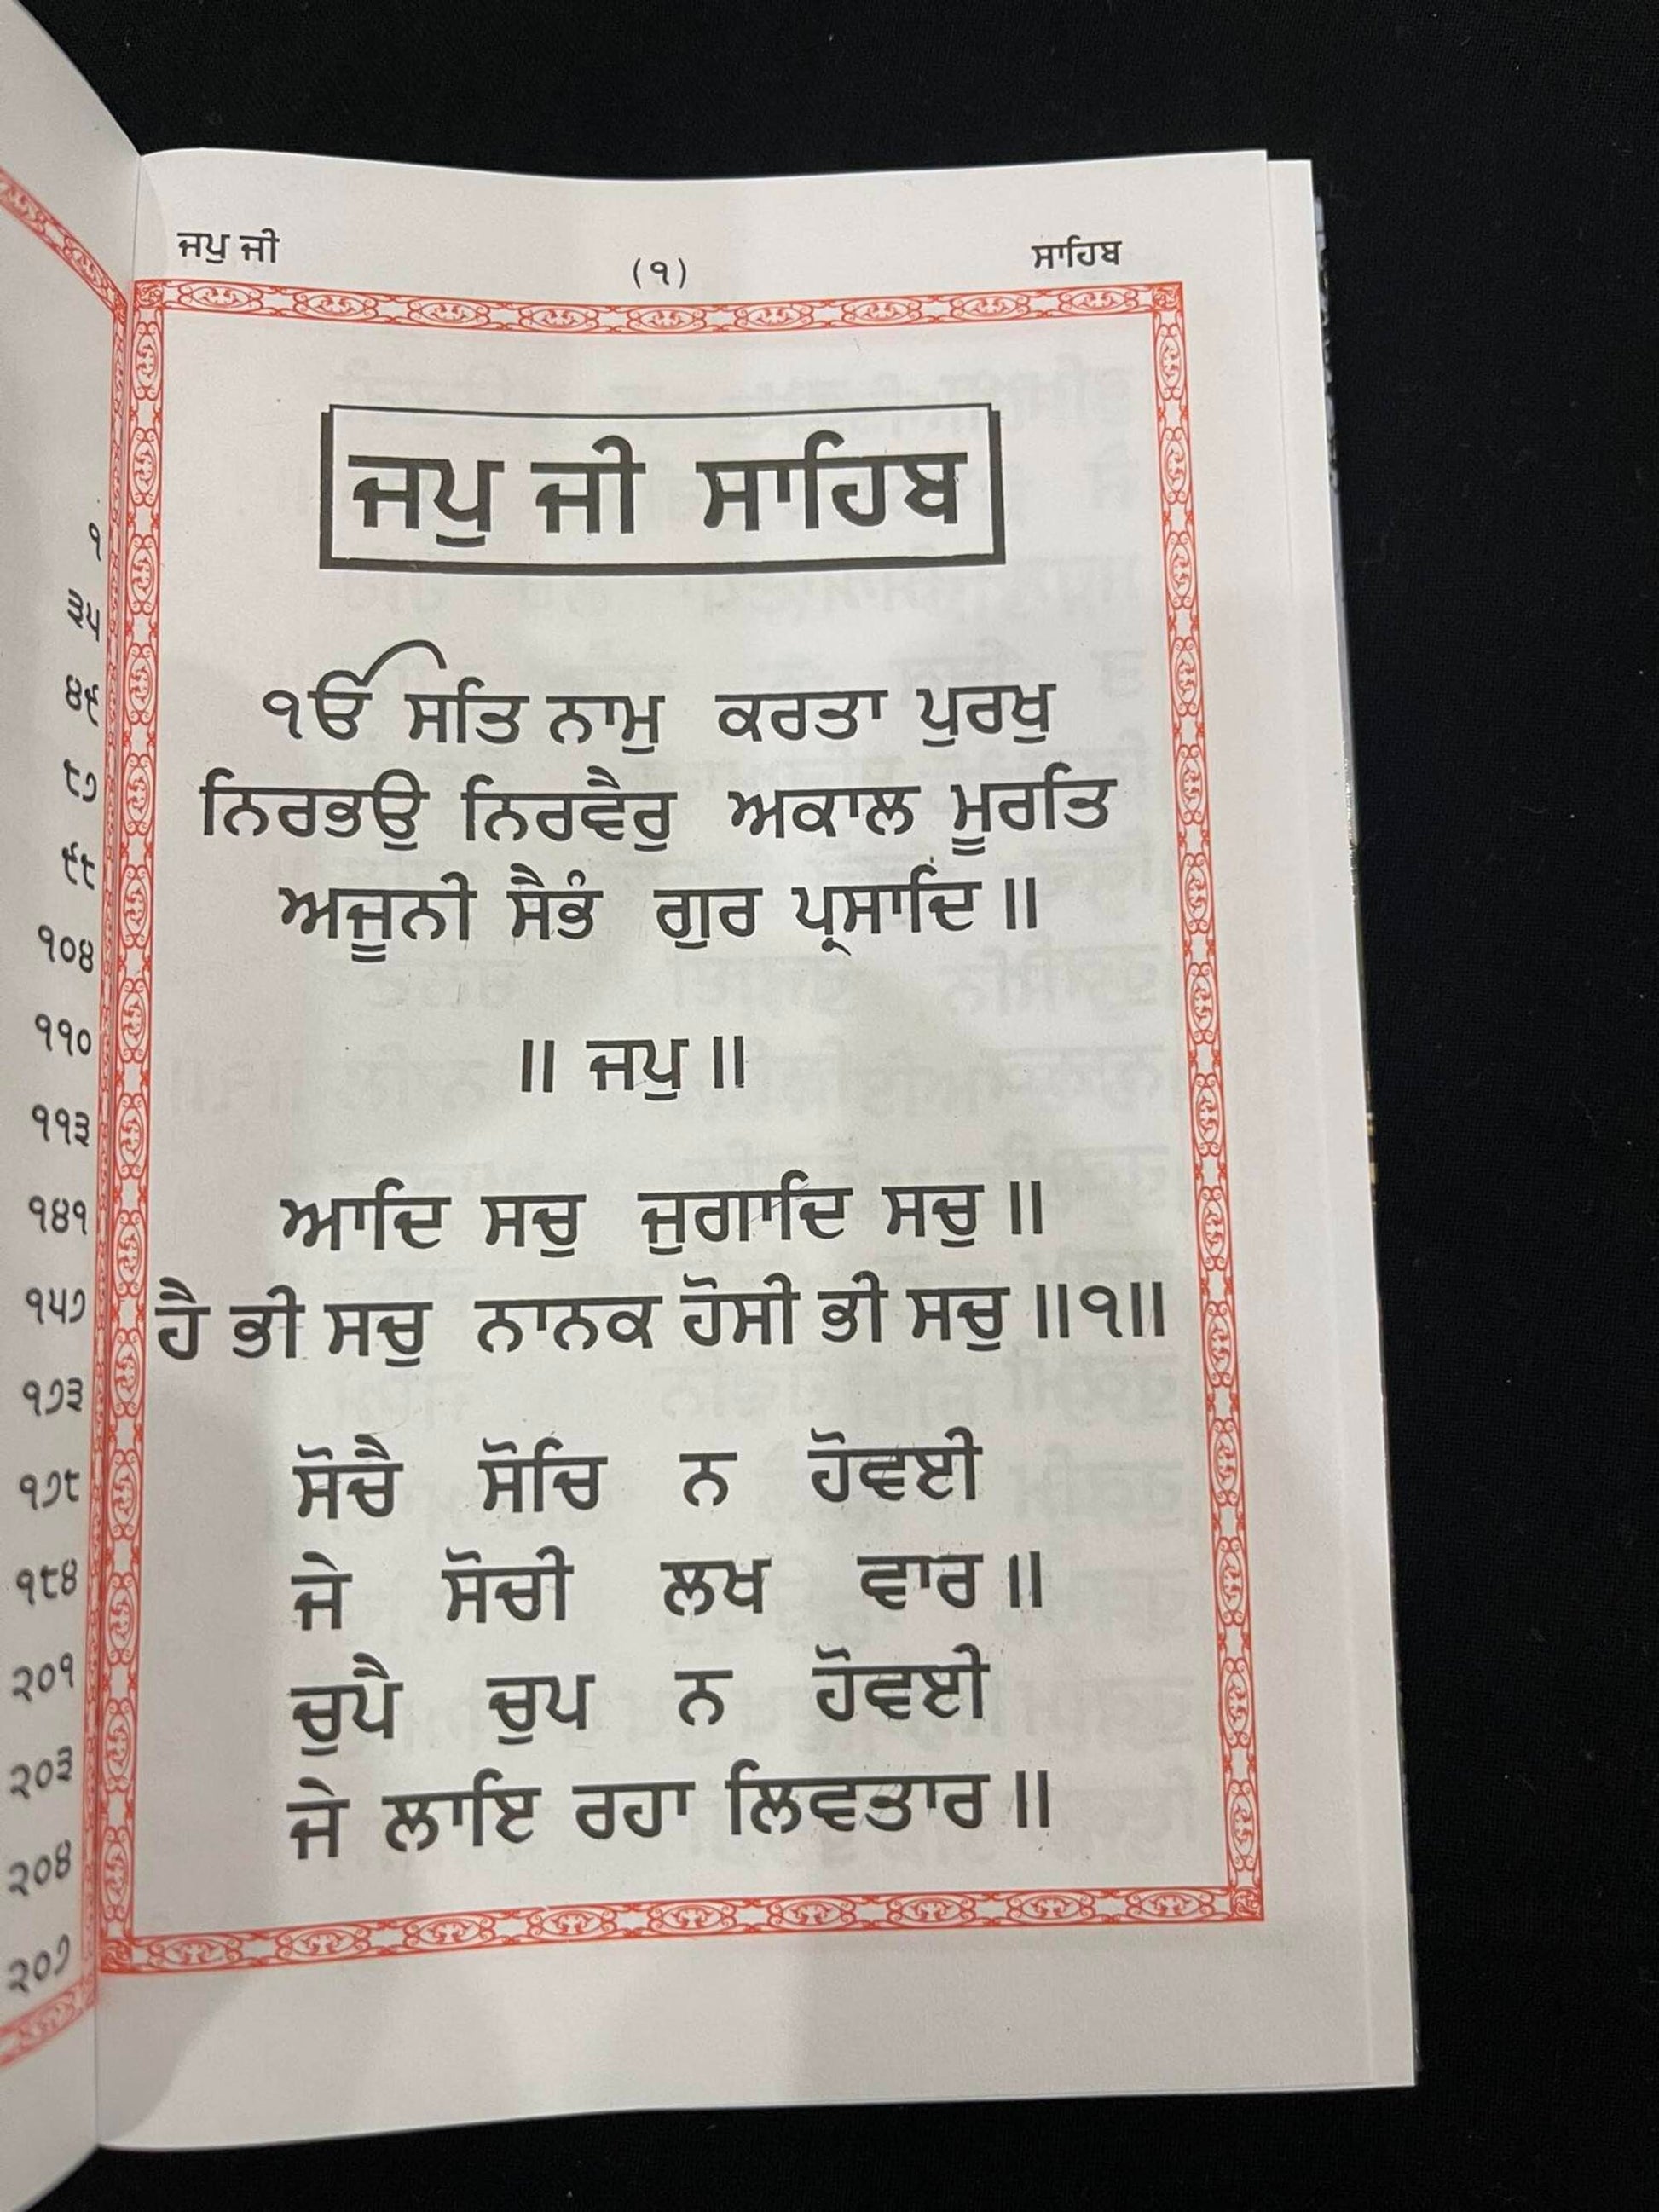 ੧
੩੫
੪੯
੮੭
੯੮
੧੦੪
੧੧੦
੧੧੩
੧੪੧
੧੫੭
੧੭੩
੧੭੮
੧੮੪
੨੦੧
੨੦੩
੨੦੪
੨੦੭
ਜਪੁ ਜੀ (੧) ਸਾਹਿਬ
ਜਪੁ ਜੀ ਸਾਹਿਬ
ੴ ਸਤਿ ਨਾਮੁ ਕਰਤਾ ਪੁਰਖੁ
ਨਿਰਭਉ ਨਿਰਵੈਰੁ ਅਕਾਲ ਮੂਰਤਿ
ਅਜੂਨੀ ਸੈਭੰ ਗੁਰ ਪ੍ਰਸਾਦਿ ॥
॥ ਜਪੁ ॥
ਆਦਿ ਸਚੁ ਜੁਗਾਦਿ ਸਚੁ ॥
ਹੈ ਭੀ ਸਚੁ ਨਾਨਕ ਹੋਸੀ ਭੀ ਸਚੁ ॥੧॥
ਸੋਚੈ ਸੋਚਿ ਨ ਹੋਵਈ
ਜੇ ਸੋਚੀ ਲਖ ਵਾਰ ॥
ਚੁਪੈ ਚੁਪ ਨ ਹੋਵਈ
ਜੇ ਲਾਇ ਰਹਾ ਲਿਵਤਾਰ ॥